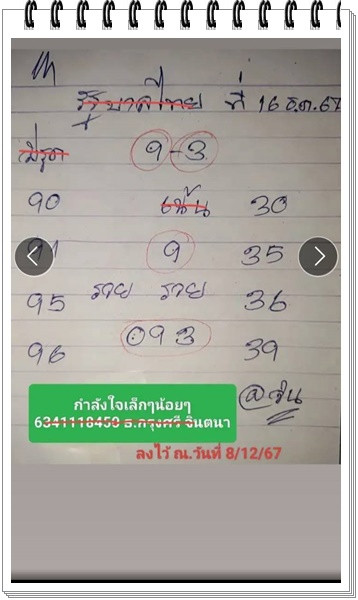 รัฐบาลไทย ที่ 16 ธ.ค. 67
9-3
90 เน้น 30
91 9 35
95 รวย รวย 36
96 093 39
@จิน
กำลังใจเล็กๆน้อยๆ
6341118459 ธ.กรุงศรี จินตนา
ลงไว้ ณ.วันที่ 8/12/67